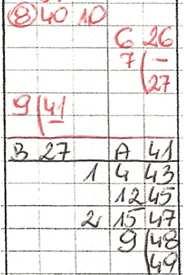 8 40 10
6 26
7 -
27
9 41
B 27 A 41
1 4 43
12 45
2 15 47
9 48
49